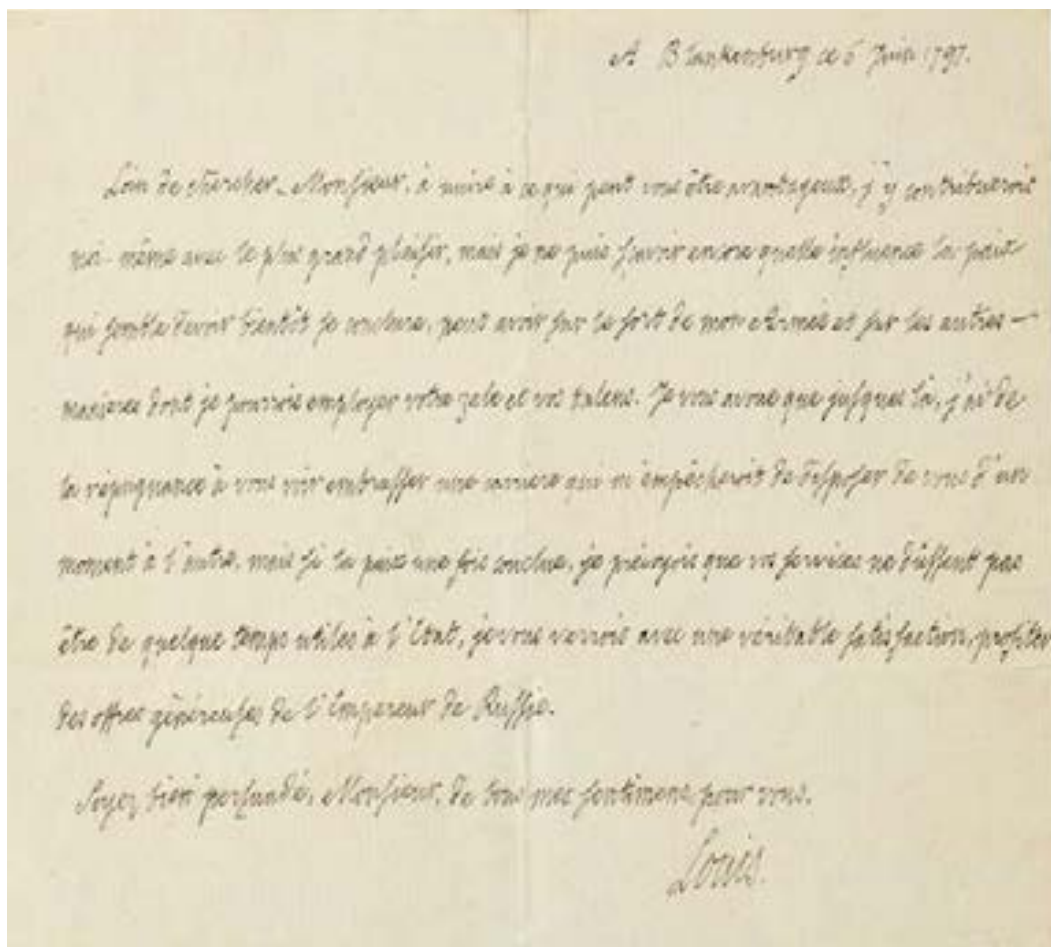 A Blankenburg ce 6 Juin 1797.
Loin de chercher, Monsieur, à nuire à ce qui peut vous être avantageux, j'y contribuerois
moi-même avec le plus grand plaisir, mais je ne puis sçavoir encore quelle influence la paix
qui semble devoir bientôt se conclure, peut avoir sur le sort de mon Armée et sur les autres
manieres dont je pourrois employer votre zele et vos talens. Je vous avoue que jusques là, j'ai de
la répugnance à vous voir embrasser une carriere qui m'empêcheroit de disposer de vous d'un
moment à l'autre, mais si la paix une fois conclue, je prévoyois que vos services ne dussent pas
être de quelque temps utiles à l'Etat, je vous verrois avec une véritable satisfaction, profiter
des offres généreuses de l'Empereur de Russie.
Soyez bien persuadé, Monsieur, de tous mes sentimens pour vous.
Louis.